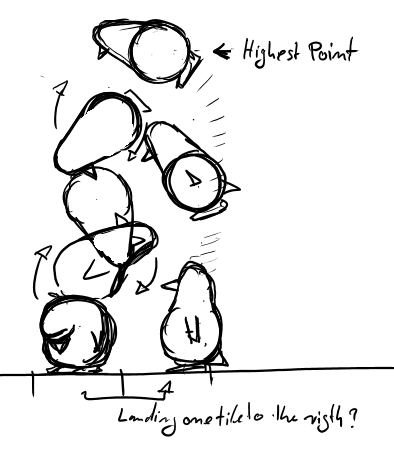 Highest Point
Landing one tile to the rigth?